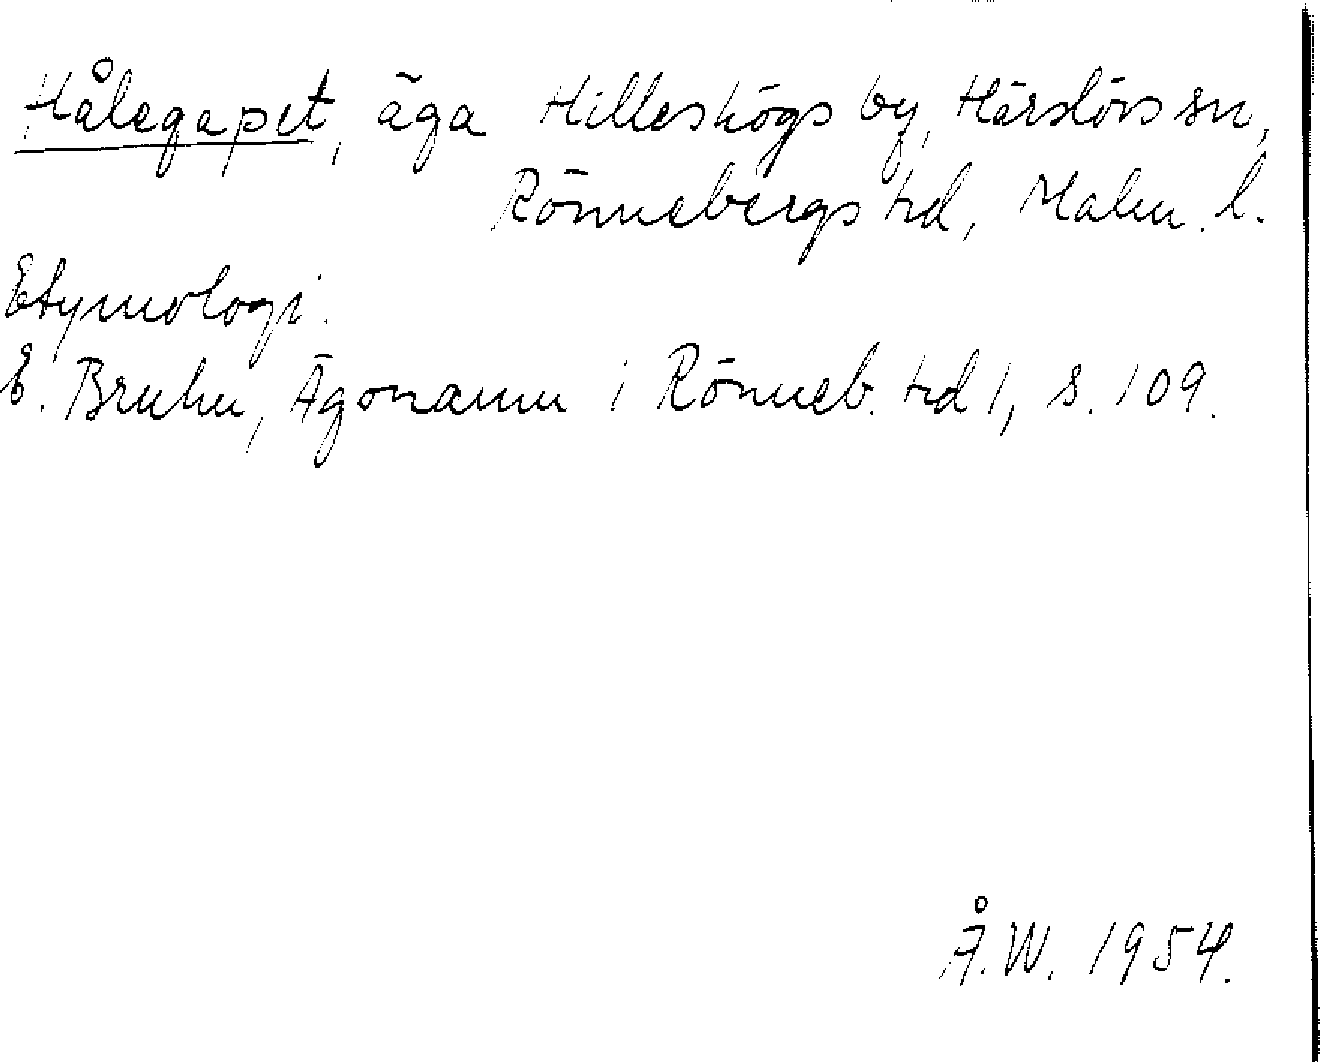 Hålegapet, äga Hilleshögs by, Härslövs sn,
Rönnebergs hd, Malm. l.
Etymologi.
E. Bruhn, Ägonamn i Rönneb. hd 1, s. 109.
Å.W. 1954.